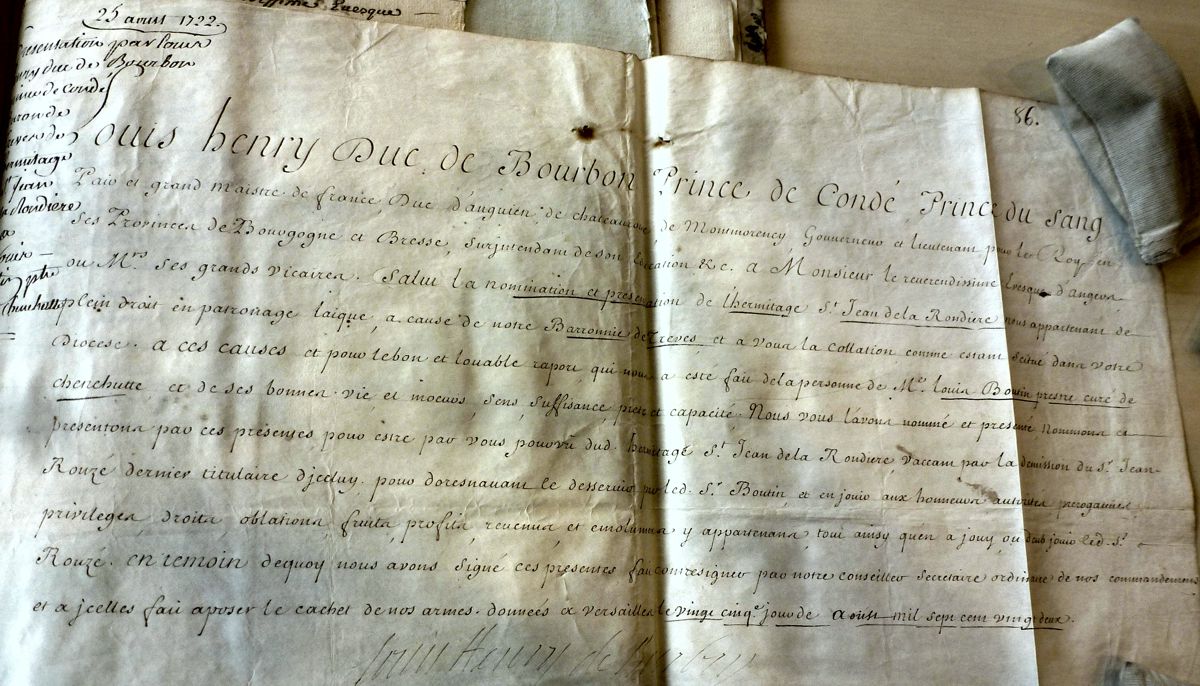 25 aoust 1722.
presentation par louis
henry duc de Bourbon
prince de condé
baron de
treves de
hermitage
St Jean
de la Rondiere
86.
Louis henry Duc de Bourbon Prince de Condé Prince du sang
Pair et grand maistre de france, Duc d'anguien, de chateauroux, de Montmorency, Gouverneur et lieutenant pour le Roy en
ses Provinces de Bourgogne et Bresse, surjntendant de son Education &c. a Monsieur le reverendissime Evesque d'angers
ou Mrs ses grands vicaires. Salut la nomination et presentation de l'hermitage St Jean de la Rondiere nous appartenant de
plein droit en patronage laique, a cause de notre Barronnie de Treves et a vous la collation comme estant scitué dans votre
Diocese. a ces causes et pour le bon et louable raport qui nous a esté fait de la personne de Me louis Boutin prestre curé de
chenehutte et de ses bonnes vie et moeurs, sens, suffisance, et capacité. Nous vous l'avons nommé et presenté nommons et
presentons par ces presentes pour estre par vous pourvu dud. hermitage St Jean de la Rondiere vaccant par la demission du Sr Jean
Rouzé dernier titulaire d'jceluy, pour doresnavant le desservir par led. Sr Boutin, et en jouir aux honneurs autorités prerogatives
privileges droits oblations fruits, profits, revenus et emolumens y appartenans, tout ainsy qu'en a jouy, ou deub jouir led. Sr
Rouzé. en temoin dequoy nous avons signé ces presentes fait contresigner par notre conseiller secretaire ordinaire de nos commandemens
et a jcelles fait aposer le cachet de nos armes. données a versailles le vingt cinqe jour de aoust mil sept cent vingt deux.
Louis Henry de Bourbon